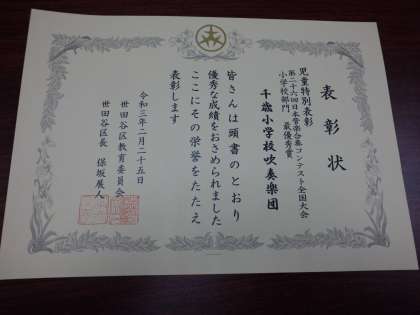 表彰状
児童特別表彰
第二十六回日本管楽合奏コンテスト全国大会
小学校部門 最優秀賞
千歳小学校吹奏楽団
皆さんは頭書のとおり
優秀な成績をおさめられました
ここにその栄誉をたたえ
表彰します
令和三年二月二十五日
世田谷区教育委員会
世田谷区長 保坂展人